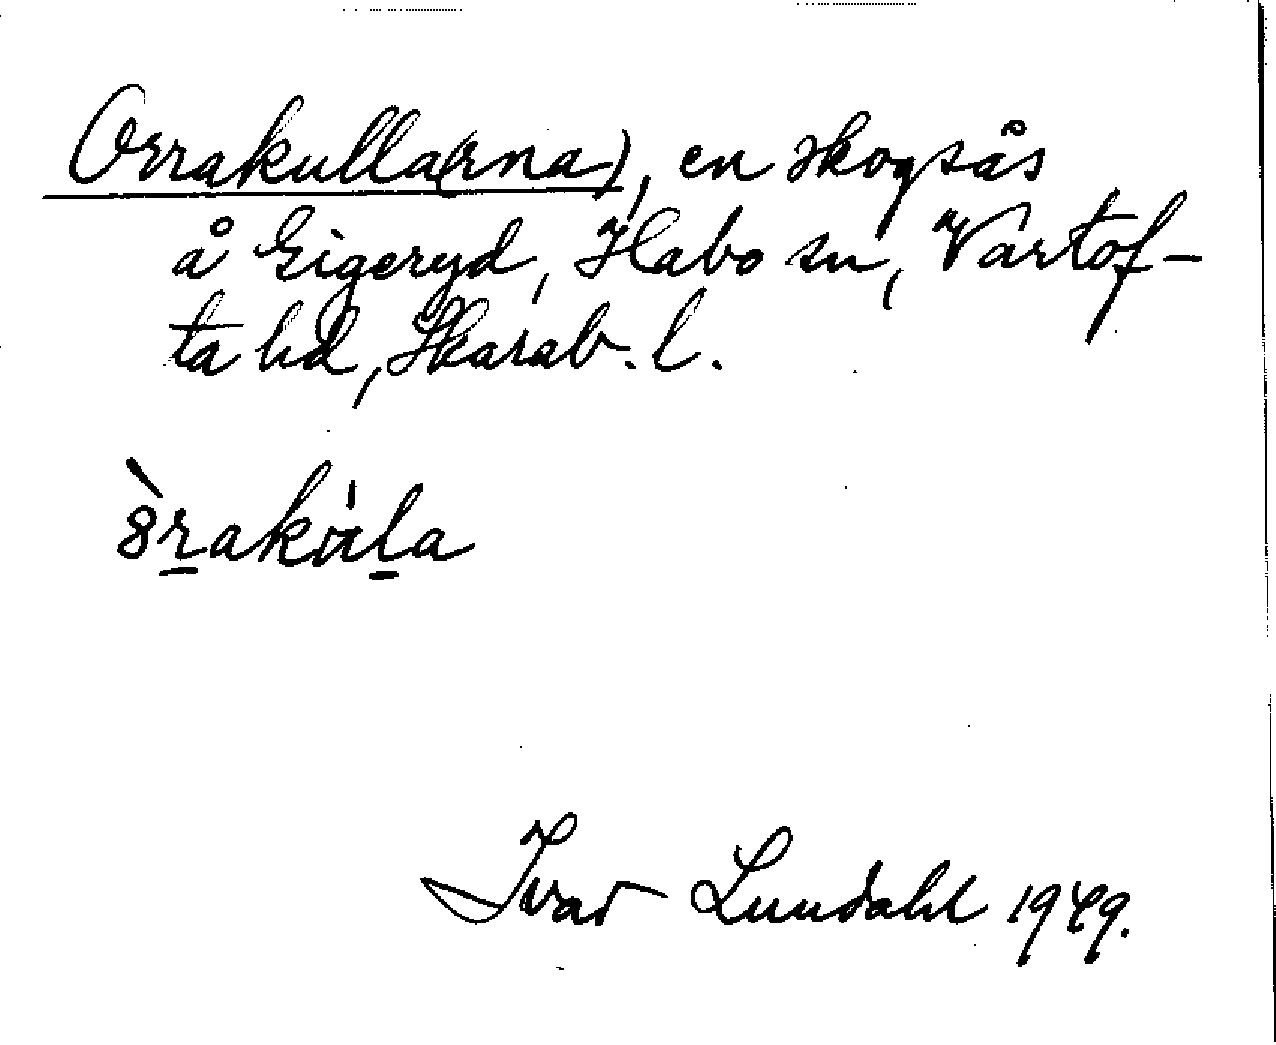 Orrakulla(rna), en skogsås
å Eigeryd, Habo sn, Vartof-
ta hd, Skarab. l.
Ivar Lundahl 1949.